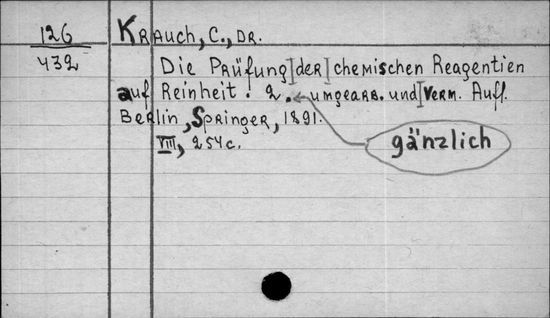 126
432
KRAUCH, C., DR.
Die Prüfung der chemischen Reagentien
auf Reinheit. 2. umgearb. und verm. Aufl.
gänzlich
Berlin, Springer, 1891.
VIII, 254 c.